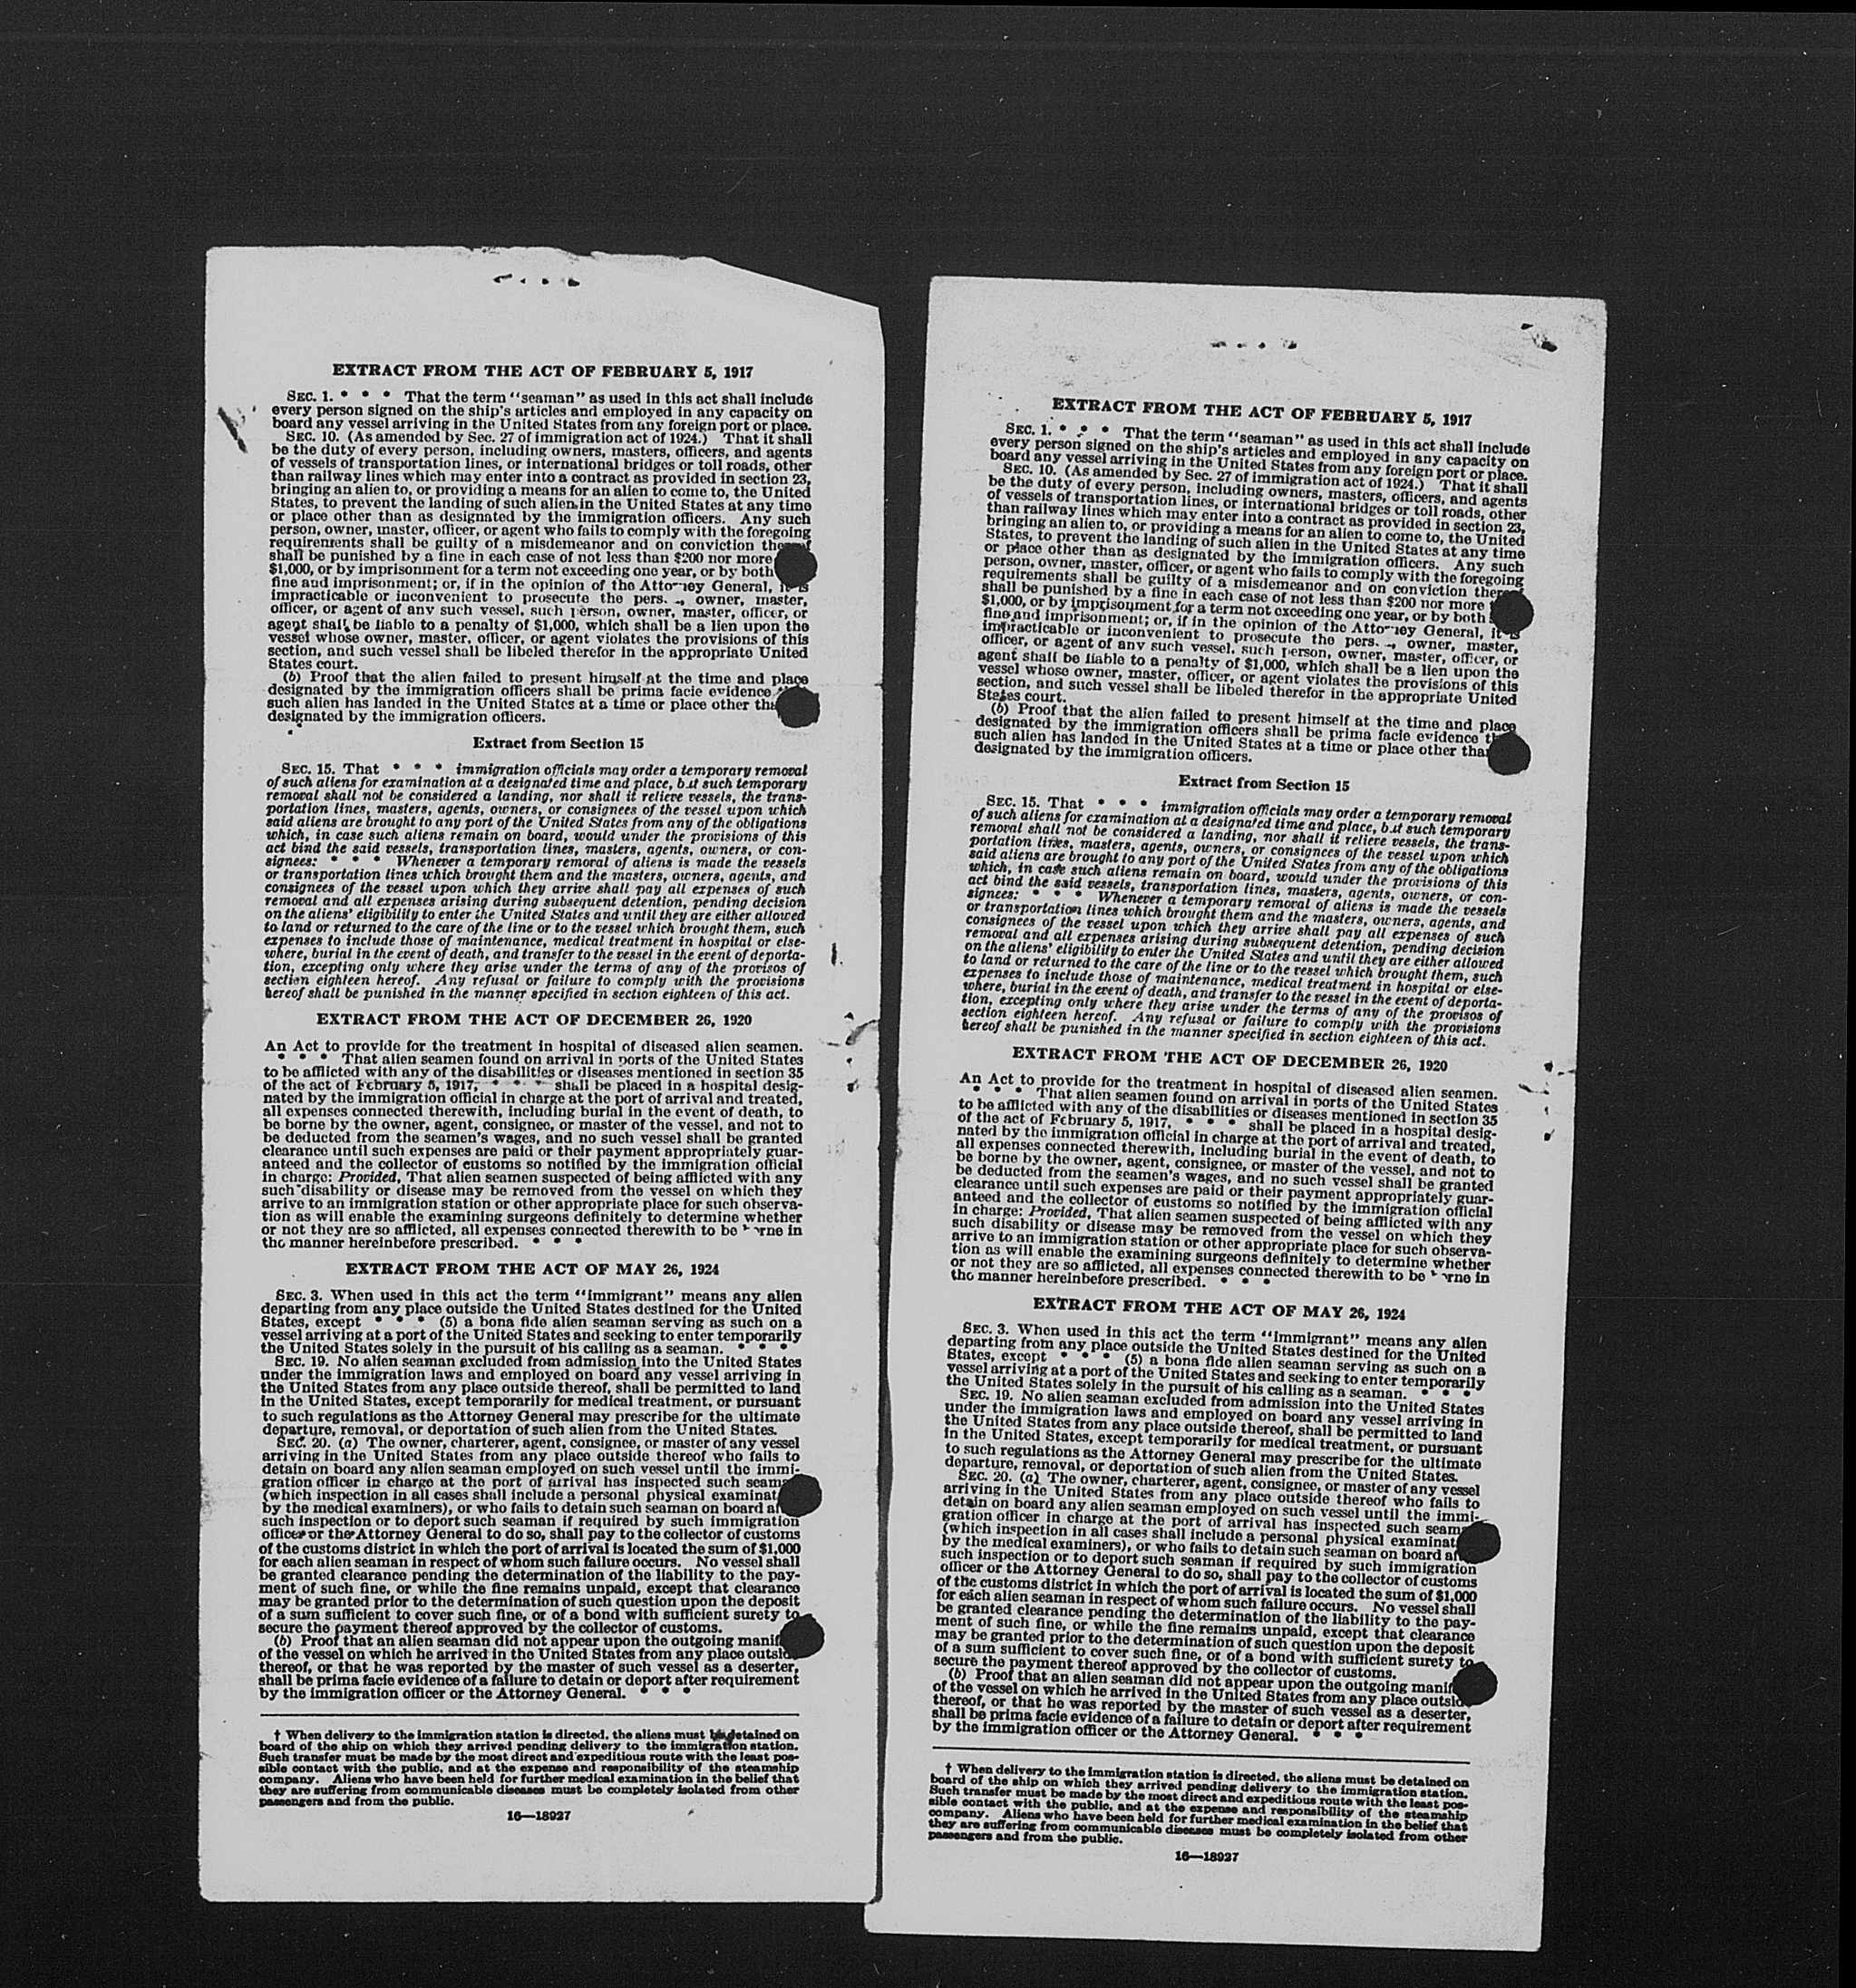 EXTRACT FROM THE ACT OF FEBRUARY 5, 1917
SEC. 1. * * * That the term "seaman" as used in this act shall include
every person signed on the ship's articles and employed in any capacity on
board any vessel arriving in the United States from any foreign port or place.
SEC. 10. (As amended by Sec. 27 of immigration act of 1924.) That it shall
be the duty of every person, including owners, masters, officers, and agents
of vessels of transportation lines, or international bridges or toll roads, other
than railway lines which may enter into a contract as provided in section 23,
bringing an alien to, or providing a means for an alien to come to, the United
States, to prevent the landing of such alien in the United States at any time
or place other than as designated by the immigration officers. Any such
person, owner, master, officer, or agent who fails to comply with the foregoing
requirements shall be guilty of a misdemeanor and on conviction
shall be punished by a fine in each case of not less than $200 nor more
$1,000, or by imprisonment for a term not exceeding one year, or by both
fine and imprisonment; or, if in the opinion of the Attorney General, it is
impracticable or inconvenient to prosecute the pers. owner, master,
officer, or agent of any such vessel, such person, owner, master, officer, or
agent shall be liable to a penalty of $1,000, which shall be a lien upon the
vessel whose owner, master, officer, or agent violates the provisions of this
section, and such vessel shall be libeled therefor in the appropriate United
States court.
(b) Proof that the alien failed to present himself at the time and place
designated by the immigration officers shall be prima facie evidence
such alien has landed in the United States at a time or place other
designated by the immigration officers.
Extract from Section 15
SEC. 15. That * * * immigration officials may order a temporary removal
of such aliens for examination at a designated time and place, but such temporary
removal shall not be considered a landing, nor shall it relieve vessels, the trans-
portation lines, masters, agents, owners, or consignees of the vessel upon which
said aliens are brought to any port of the United States from any of the obligations
which, in case such aliens remain on board, would under the provisions of this
act bind the said vessels, transportation lines, masters, agents, owners, or con-
signees: * * * Whenever a temporary removal of aliens is made the vessels
or transportation lines which brought them and the masters, owners, agents, and
consignees of the vessel upon which they arrive shall pay all expenses of such
removal and all expenses arising during subsequent detention, pending decision
on the aliens' eligibility to enter the United States and until they are either allowed
to land or returned to the care of the line or to the vessel which brought them, such
expenses to include those of maintenance, medical treatment in hospital or else-
where, burial in the event of death, and transfer to the vessel in the event of deporta-
tion, excepting only where they arise under the terms of any of the provisos of
section eighteen hereof. Any refusal or failure to comply with the provisions
hereof shall be punished in the manner specified in section eighteen of this act.
EXTRACT FROM THE ACT OF DECEMBER 26, 1920
An Act to provide for the treatment in hospital of diseased alien seamen.
* * * That alien seamen found on arrival in ports of the United States
to be afflicted with any of the disabilities or diseases mentioned in section 35
of the act of February 5, 1917, * * * shall be placed in a hospital desig-
nated by the immigration official in charge at the port of arrival and treated,
all expenses connected therewith, including burial in the event of death, to
be borne by the owner, agent, consignee, or master of the vessel, and not to
be deducted from the seamen's wages, and no such vessel shall be granted
clearance until such expenses are paid or their payment appropriately guar-
anteed and the collector of customs so notified by the immigration official
in charge: Provided, That alien seamen suspected of being afflicted with any
such disability or disease may be removed from the vessel on which they
arrive to an immigration station or other appropriate place for such observa-
tion as will enable the examining surgeons definitely to determine whether
or not they are so afflicted, all expenses connected therewith to be borne in
the manner hereinbefore prescribed. * * *
EXTRACT FROM THE ACT OF MAY 26, 1924
SEC. 3. When used in this act the term "immigrant" means any alien
departing from any place outside the United States destined for the United
States, except * * * (5) a bona fide alien seaman serving as such on a
vessel arriving at a port of the United States and seeking to enter temporarily
the United States solely in the pursuit of his calling as a seaman. * * *
SEC. 19. No alien seaman excluded from admission into the United States
under the immigration laws and employed on board any vessel arriving in
the United States from any place outside thereof, shall be permitted to land
in the United States, except temporarily for medical treatment, or pursuant
to such regulations as the Attorney General may prescribe for the ultimate
departure, removal, or deportation of such alien from the United States.
SEC. 20. (a) The owner, charterer, agent, consignee, or master of any vessel
arriving in the United States from any place outside thereof who fails to
detain on board any alien seaman employed on such vessel until the immi-
gration officer in charge at the port of arrival has inspected such
(which inspection in all cases shall include a personal physical
by the medical examiners), or who fails to detain such seaman on board
such inspection or to deport such seaman if required by such immigration
officer or the Attorney General to do so, shall pay to the collector of customs
of the customs district in which the port of arrival is located the sum of $1,000
for each alien seaman in respect of whom such failure occurs. No vessel shall
be granted clearance pending the determination of the liability to the pay-
ment of such fine, or while the fine remains unpaid, except that clearance
may be granted prior to the determination of such question upon the deposit
of a sum sufficient to cover such fine, or of a bond with sufficient surety to
secure the payment thereof approved by the collector of customs.
(b) Proof that an alien seaman did not appear upon the outgoing
of the vessel on which he arrived in the United States from any place
thereof, or that he was reported by the master of such vessel as a deserter,
shall be prima facie evidence of a failure to detain or deport after requirement
by the immigration officer or the Attorney General. * * *
† When delivery to the immigration station is directed, the aliens must be detained on
board of the ship on which they arrived pending delivery to the immigration station.
Such transfer must be made by the most direct and expeditious route with the least pos-
sible contact with the public, and at the expense and responsibility of the steamship
company. Aliens who have been held for further medical examination in the belief that
they are suffering from communicable diseases must be completely isolated from other
passengers and from the public.
16—18927
EXTRACT FROM THE ACT OF FEBRUARY 5, 1917
SEC. 1. * * * That the term "seaman" as used in this act shall include
every person signed on the ship's articles and employed in any capacity on
board any vessel arriving in the United States from any foreign port or place.
SEC. 10. (As amended by Sec. 27 of immigration act of 1924.) That it shall
be the duty of every person, including owners, masters, officers, and agents
of vessels of transportation lines, or international bridges or toll roads, other
than railway lines which may enter into a contract as provided in section 23,
bringing an alien to, or providing a means for an alien to come to, the United
States, to prevent the landing of such alien in the United States at any time
or place other than as designated by the immigration officers. Any such
person, owner, master, officer, or agent who fails to comply with the foregoing
requirements shall be guilty of a misdemeanor and on conviction
shall be punished by a fine in each case of not less than $200 nor more
$1,000, or by imprisonment for a term not exceeding one year, or by both
fine and imprisonment; or, if in the opinion of the Attorney General, it is
impracticable or inconvenient to prosecute the pers. owner, master,
officer, or agent of any such vessel, such person, owner, master, officer, or
agent shall be liable to a penalty of $1,000, which shall be a lien upon the
vessel whose owner, master, officer, or agent violates the provisions of this
section, and such vessel shall be libeled therefor in the appropriate United
States court.
(b) Proof that the alien failed to present himself at the time and place
designated by the immigration officers shall be prima facie evidence
such alien has landed in the United States at a time or place other
designated by the immigration officers.
Extract from Section 15
SEC. 15. That * * * immigration officials may order a temporary removal
of such aliens for examination at a designated time and place, but such temporary
removal shall not be considered a landing, nor shall it relieve vessels, the trans-
portation lines, masters, agents, owners, or consignees of the vessel upon which
said aliens are brought to any port of the United States from any of the obligations
which, in case such aliens remain on board, would under the provisions of this
act bind the said vessels, transportation lines, masters, agents, owners, or con-
signees: * * * Whenever a temporary removal of aliens is made the vessels
or transportation lines which brought them and the masters, owners, agents, and
consignees of the vessel upon which they arrive shall pay all expenses of such
removal and all expenses arising during subsequent detention, pending decision
on the aliens' eligibility to enter the United States and until they are either allowed
to land or returned to the care of the line or to the vessel which brought them, such
expenses to include those of maintenance, medical treatment in hospital or else-
where, burial in the event of death, and transfer to the vessel in the event of deporta-
tion, excepting only where they arise under the terms of any of the provisos of
section eighteen hereof. Any refusal or failure to comply with the provisions
hereof shall be punished in the manner specified in section eighteen of this act.
EXTRACT FROM THE ACT OF DECEMBER 26, 1920
An Act to provide for the treatment in hospital of diseased alien seamen.
* * * That alien seamen found on arrival in ports of the United States
to be afflicted with any of the disabilities or diseases mentioned in section 35
of the act of February 5, 1917, * * * shall be placed in a hospital desig-
nated by the immigration official in charge at the port of arrival and treated,
all expenses connected therewith, including burial in the event of death, to
be borne by the owner, agent, consignee, or master of the vessel, and not to
be deducted from the seamen's wages, and no such vessel shall be granted
clearance until such expenses are paid or their payment appropriately guar-
anteed and the collector of customs so notified by the immigration official
in charge: Provided, That alien seamen suspected of being afflicted with any
such disability or disease may be removed from the vessel on which they
arrive to an immigration station or other appropriate place for such observa-
tion as will enable the examining surgeons definitely to determine whether
or not they are so afflicted, all expenses connected therewith to be borne in
the manner hereinbefore prescribed. * * *
EXTRACT FROM THE ACT OF MAY 26, 1924
SEC. 3. When used in this act the term "immigrant" means any alien
departing from any place outside the United States destined for the United
States, except * * * (5) a bona fide alien seaman serving as such on a
vessel arriving at a port of the United States and seeking to enter temporarily
the United States solely in the pursuit of his calling as a seaman. * * *
SEC. 19. No alien seaman excluded from admission into the United States
under the immigration laws and employed on board any vessel arriving in
the United States from any place outside thereof, shall be permitted to land
in the United States, except temporarily for medical treatment, or pursuant
to such regulations as the Attorney General may prescribe for the ultimate
departure, removal, or deportation of such alien from the United States.
SEC. 20. (a) The owner, charterer, agent, consignee, or master of any vessel
arriving in the United States from any place outside thereof who fails to
detain on board any alien seaman employed on such vessel until the immi-
gration officer in charge at the port of arrival has inspected such
(which inspection in all cases shall include a personal physical
by the medical examiners), or who fails to detain such seaman on board
such inspection or to deport such seaman if required by such immigration
officer or the Attorney General to do so, shall pay to the collector of customs
of the customs district in which the port of arrival is located the sum of $1,000
for each alien seaman in respect of whom such failure occurs. No vessel shall
be granted clearance pending the determination of the liability to the pay-
ment of such fine, or while the fine remains unpaid, except that clearance
may be granted prior to the determination of such question upon the deposit
of a sum sufficient to cover such fine, or of a bond with sufficient surety to
secure the payment thereof approved by the collector of customs.
(b) Proof that an alien seaman did not appear upon the outgoing
of the vessel on which he arrived in the United States from any place
thereof, or that he was reported by the master of such vessel as a deserter,
shall be prima facie evidence of a failure to detain or deport after requirement
by the immigration officer or the Attorney General. * * *
† When delivery to the immigration station is directed, the aliens must be detained on
board of the ship on which they arrived pending delivery to the immigration station.
Such transfer must be made by the most direct and expeditious route with the least pos-
sible contact with the public, and at the expense and responsibility of the steamship
company. Aliens who have been held for further medical examination in the belief that
they are suffering from communicable diseases must be completely isolated from other
passengers and from the public.
16—18927